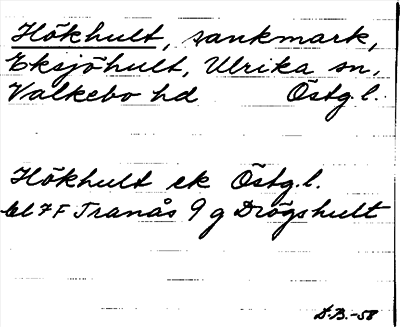 Hökhult, sankmark,
Eksjöhult, Ulrika sn,
Valkebo hd Östg. l.
Hökhult ek Östg. l.
bl 7F Tranås 9 g Drögshult
D.B.-58